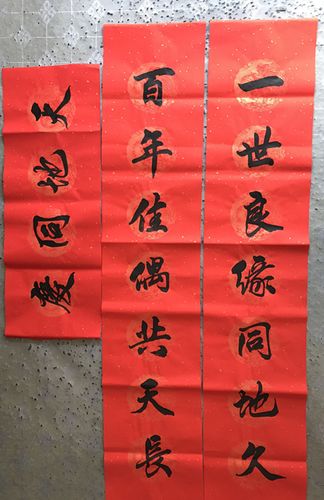 一世良緣同地久
百年佳偶共天長
天地同慶